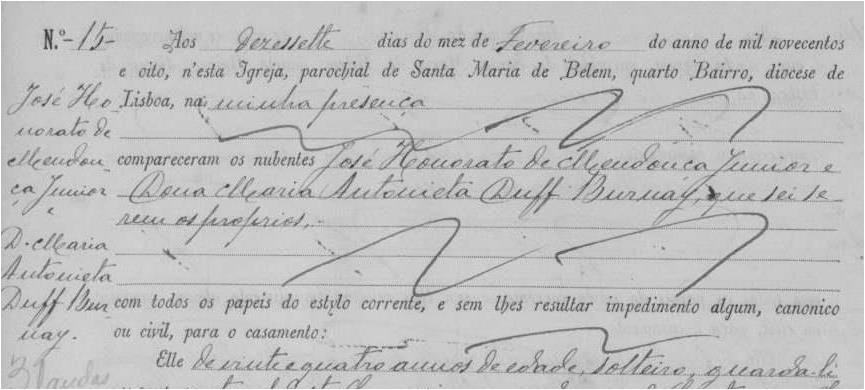 N.º - 15 - Aos dezessette dias do mez de Fevereiro do anno de mil novecentos
e oito, n'esta Igreja, parochial de Santa Maria de Belem, quarto Bairro, diocese de
Lisboa, na minha presença
compareceram os nubentes José Honorato de Mendonça Junior e
Dona Maria Antonieta Duff Burnay, que sei se-
rem os proprios,
com todos os papeis do estylo corrente, e sem lhes resultar impedimento algum, canonico
ou civil, para o casamento:
Elle de vinte e quatro annos de edade, solteiro, guarda-li
José Ho
norato de
Mendon
ça Junior
e
D. Maria
Antonieta
Duff Bur
nay.